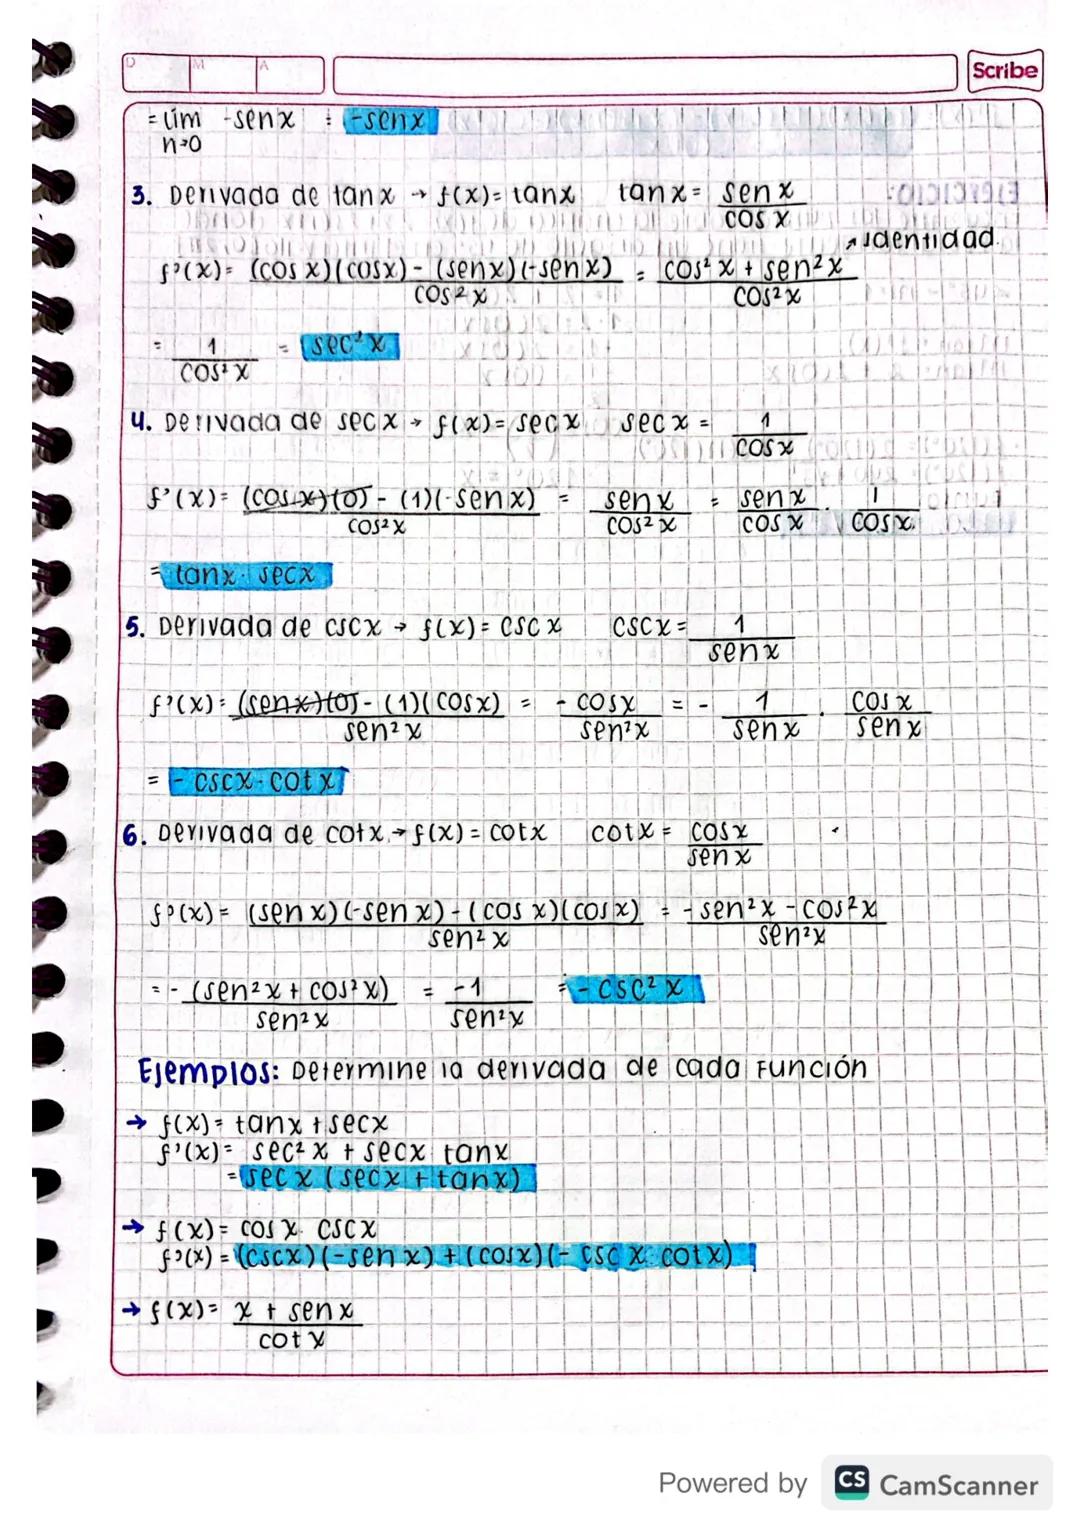 D M A
Scribe
= lím -sen x = -sen x
n→0
3. Derivada de tan x → f(x)= tan x tan x = sen x / cos x
↗ identidad.
f'(x)= (cos x)(cos x) - (sen x)(-sen x) / cos² x = cos² x + sen² x / cos² x
= 1 / cos² x = sec² x
4. Derivada de sec x → f(x)= sec x sec x = 1 / cos x
f'(x)= (cos x)(0) - (1)(-sen x) / cos² x = sen x / cos² x = sen x / cos x · 1 / cos x
= tan x · sec x
5. Derivada de csc x → f(x)= csc x csc x = 1 / sen x
f'(x)= (sen x)(0) - (1)(cos x) / sen² x = - cos x / sen² x = - 1 / sen x · cos x / sen x
= - csc x · cot x
6. Derivada de cot x → f(x) = cot x cot x = cos x / sen x
f'(x)= (sen x)(-sen x) - (cos x)(cos x) / sen² x = - sen² x - cos² x / sen² x
= - (sen² x + cos² x) / sen² x = -1 / sen² x = - csc² x
Ejemplos: Determine la derivada de cada función
→ f(x)= tan x + sec x
f'(x)= sec² x + sec x tan x
= sec x (sec x + tan x)
→ f(x)= cos x · csc x
f'(x) = (csc x)(-sen x) + (cos x)(- csc x · cot x)
→ f(x)= x + sen x / cot x
Powered by CS CamScanner